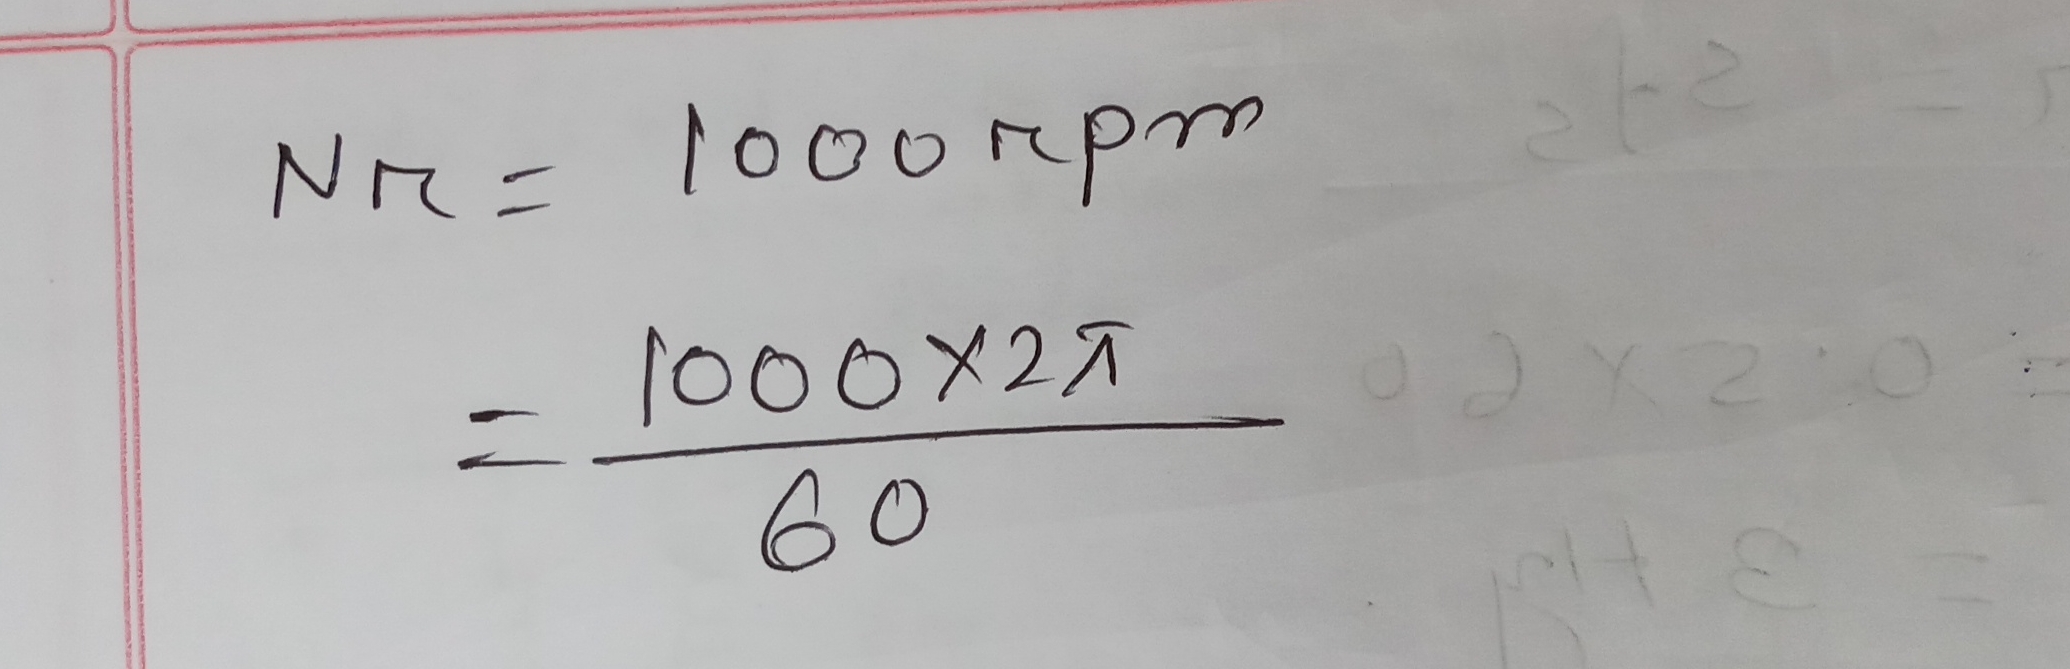 Nr = 1000 rpm
= 1000×2π
60